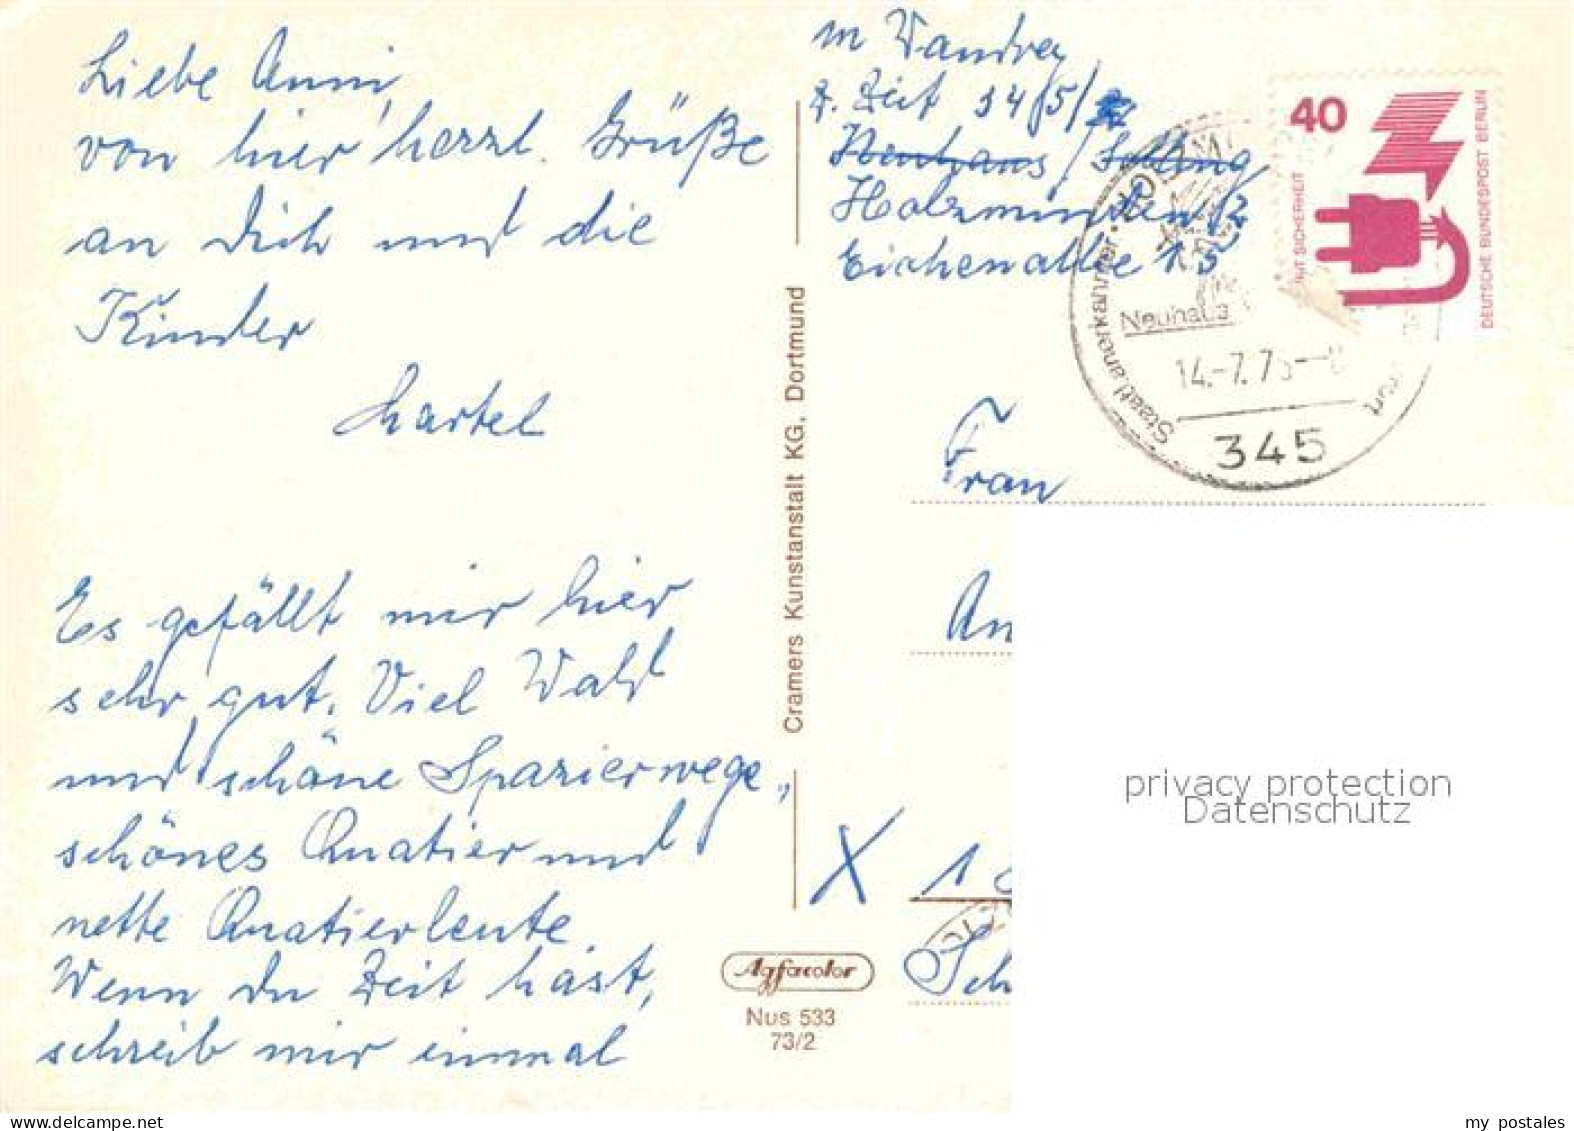 Liebe Anni,
von hier herzl. Grüße
an Dich und die
Kinder
Es gefällt mir hier
sehr gut. Viel Wald
und schöne Spazierwege,
schönes Quatier und
nette Quatierleute.
Wenn du Zeit hast,
schreib mir einmal
Cramers Kunstanstalt KG, Dortmund
Agfacolor
Nus 533
73/2
z. Zeit 14/5/
Neuhaus / Solling
Holzminden 2
Eichenallee 15
40
MIT SICHERHEIT
DEUTSCHE BUNDESPOST BERLIN
Neuhaus
14.-7.75
345
Frau
An
X 1
Sch
privacy protection
Datenschutz
my postales
www.delcampe.net